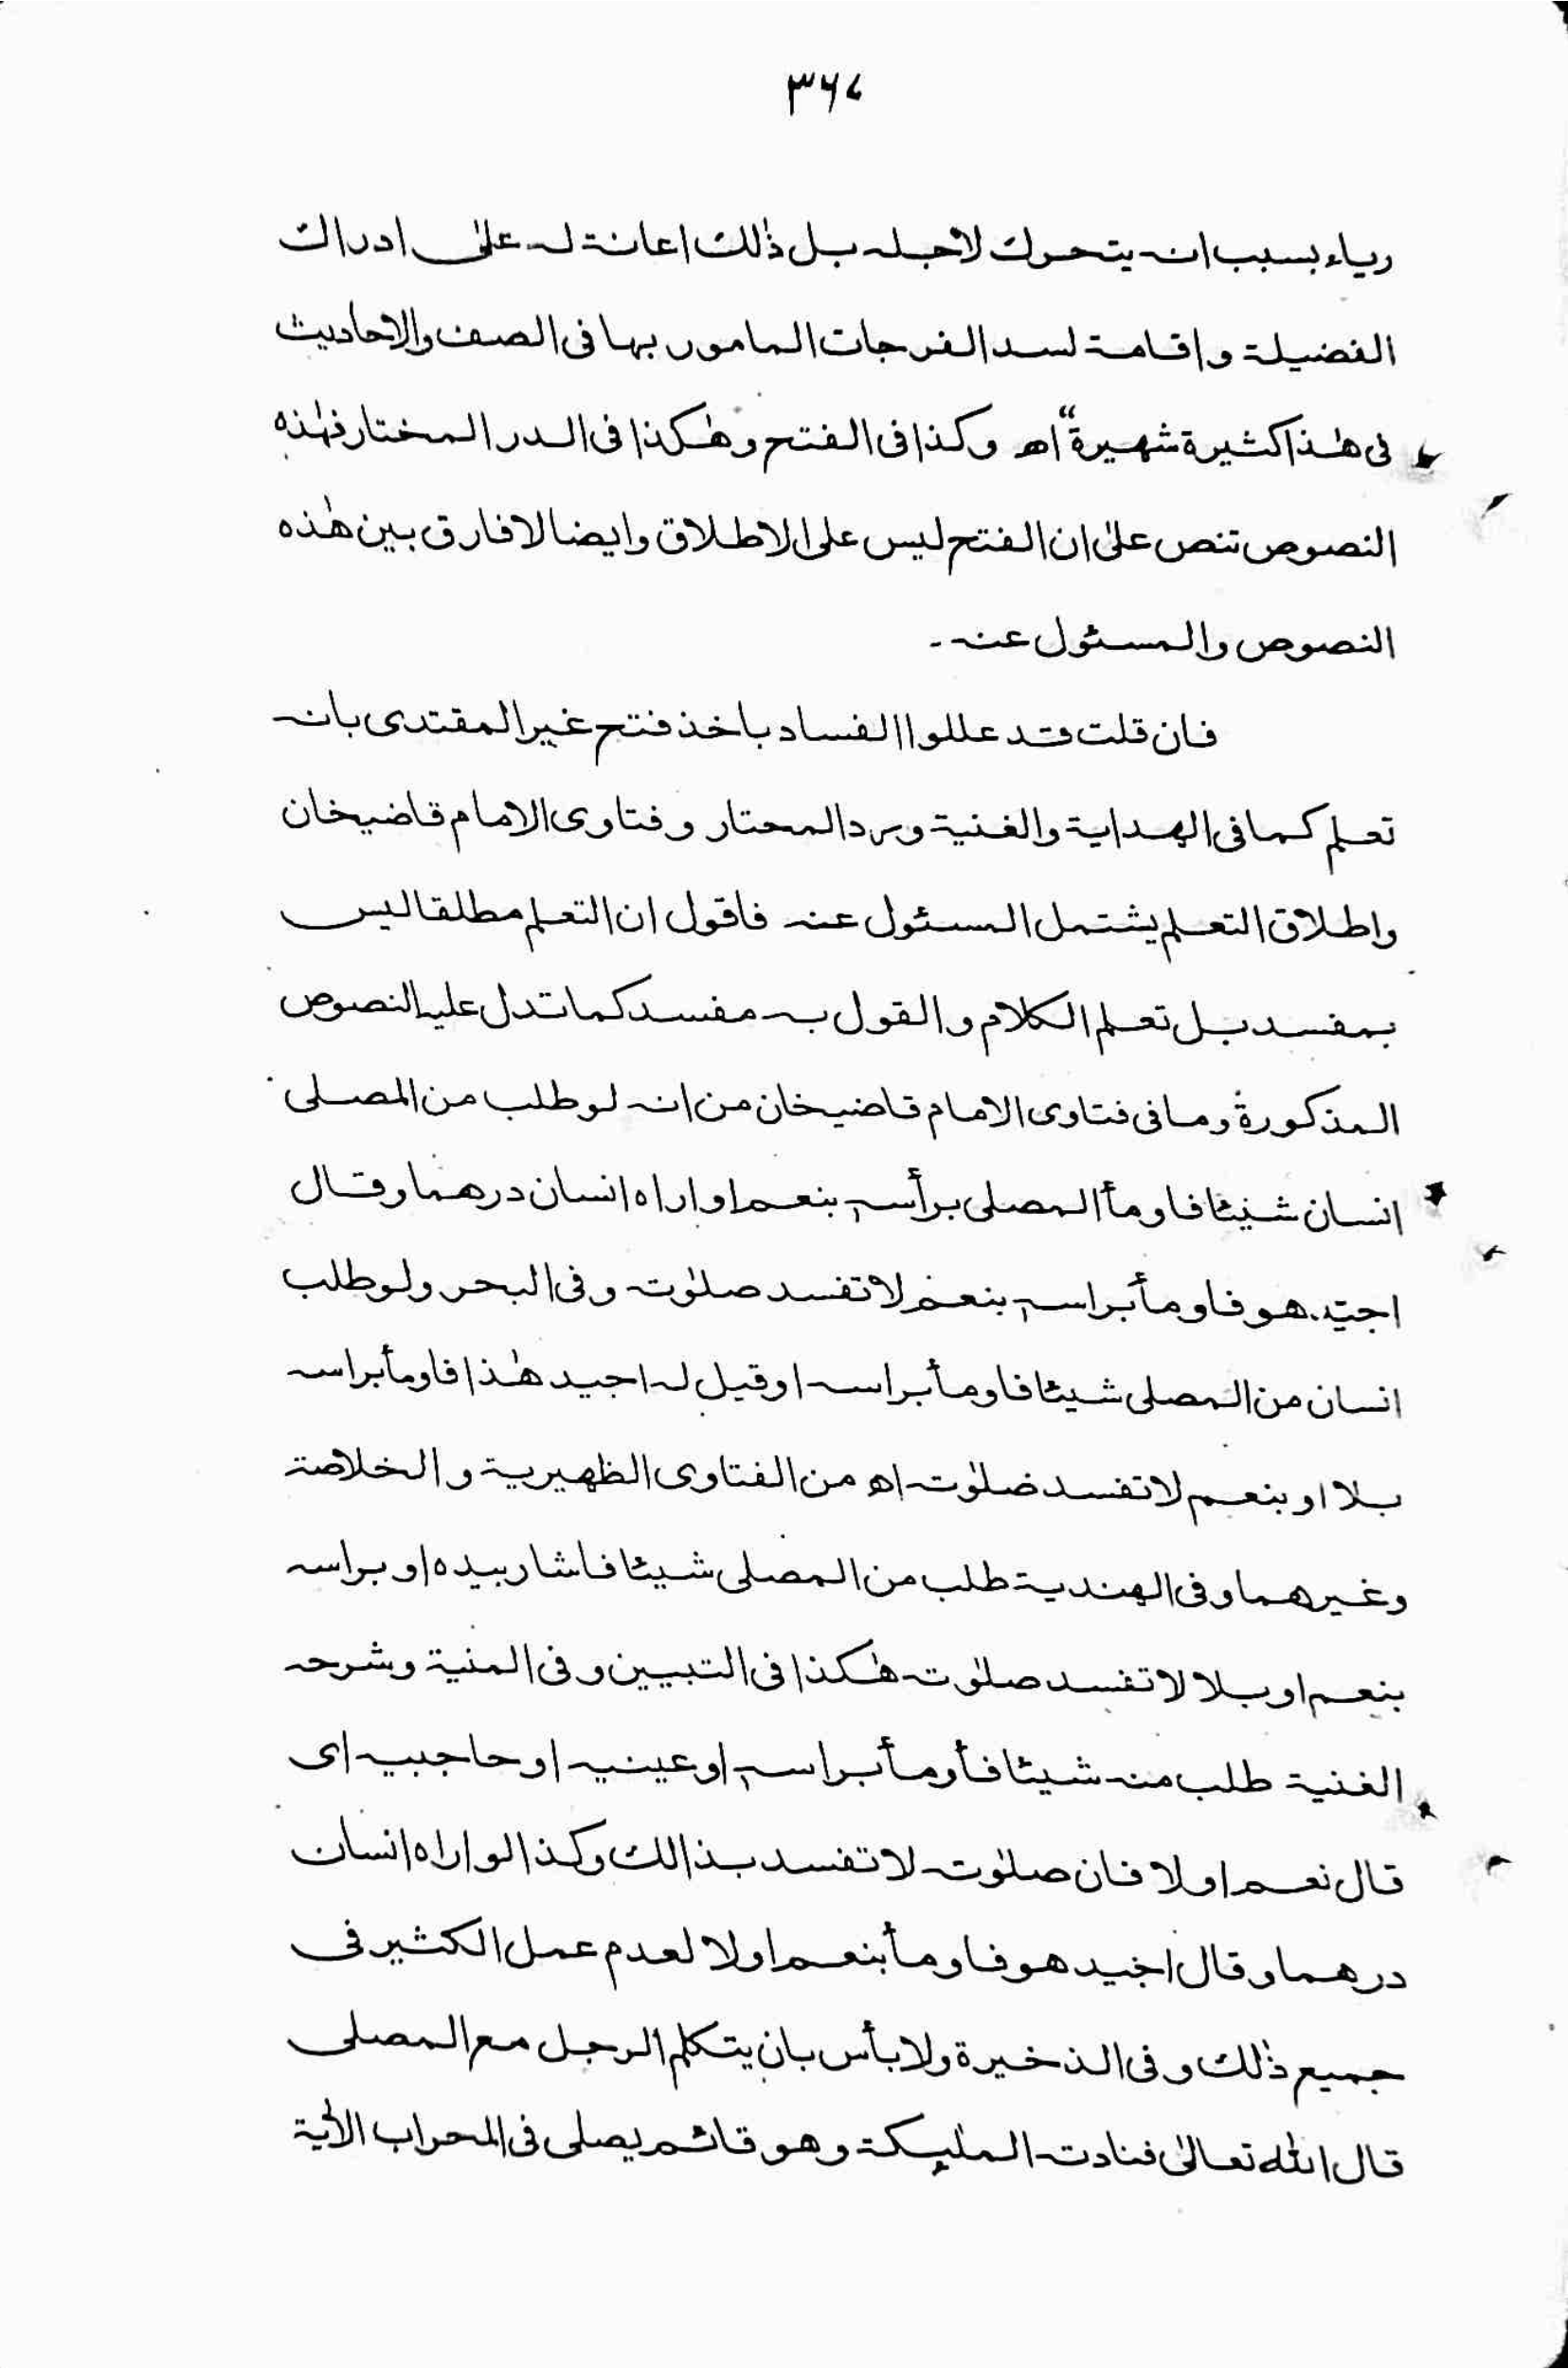 ۳۶۷
رياء بسبب انه يتحرك لاجله بل ذٰلك اعانة له علىٰ ادراك
الفضيلة واقامة لسد الفرجات المامور بها فى الصف والاحاديث
فى هٰذا كثيرة شهيرة“ اھ وكذا فى الفتح وهٰكذا فى الدر المختار فهٰذه
النصوص تنص علىٰ ان الفتح ليس على الاطلاق وايضا لا فارق بين هٰذه
النصوص والمسئول عنه ۔
فان قلت قد عللوا الفساد باخذ فتح غير المقتدى بانه
تعلم كما فى الهداية والغنية ورد المحتار وفتاوى الامام قاضيخان
واطلاق التعلم يشتمل المسئول عنه فاقول ان التعلم مطلقا ليس
بمفسد بل تعلم الكلام والقول به مفسد كما تدل عليه النصوص
المذكورة وما فى فتاوى الامام قاضيخان من انه لو طلب من المصلى
انسان شيئا فاومأ المصلى برأسه بنعم او اراه انسان درهما وقال
اجيد هو فاومأ براسه بنعم لا تفسد صلوٰته وفى البحر ولو طلب
انسان من المصلى شيئا فاومأ براسه او قيل له اجيد هٰذا فاومأ براسه
بلا او بنعم لا تفسد صلوٰته اھ من الفتاوى الظهيرية والخلاصة
وغيرهما وفى الهندية طلب من المصلى شيئا فاشار بيده او براسه
بنعم او بلا لا تفسد صلوٰته هٰكذا فى التبيين وفى المنية وشرحه
الغنية طلب منه شيئا فأومأ براسه او عينيه او حاجبيه اى
قال نعم او لا فان صلوٰته لا تفسد بذالك وكذا لو اراه انسان
درهما وقال اجيد هو فاومأ بنعم او لا لعدم عمل الكثير فى
جميع ذٰلك وفى الذخيرة ولا بأس بان يتكلم الرجل مع المصلى
قال الله تعالىٰ فنادته الملٰئكة وهو قائم يصلى فى المحراب الاٰية